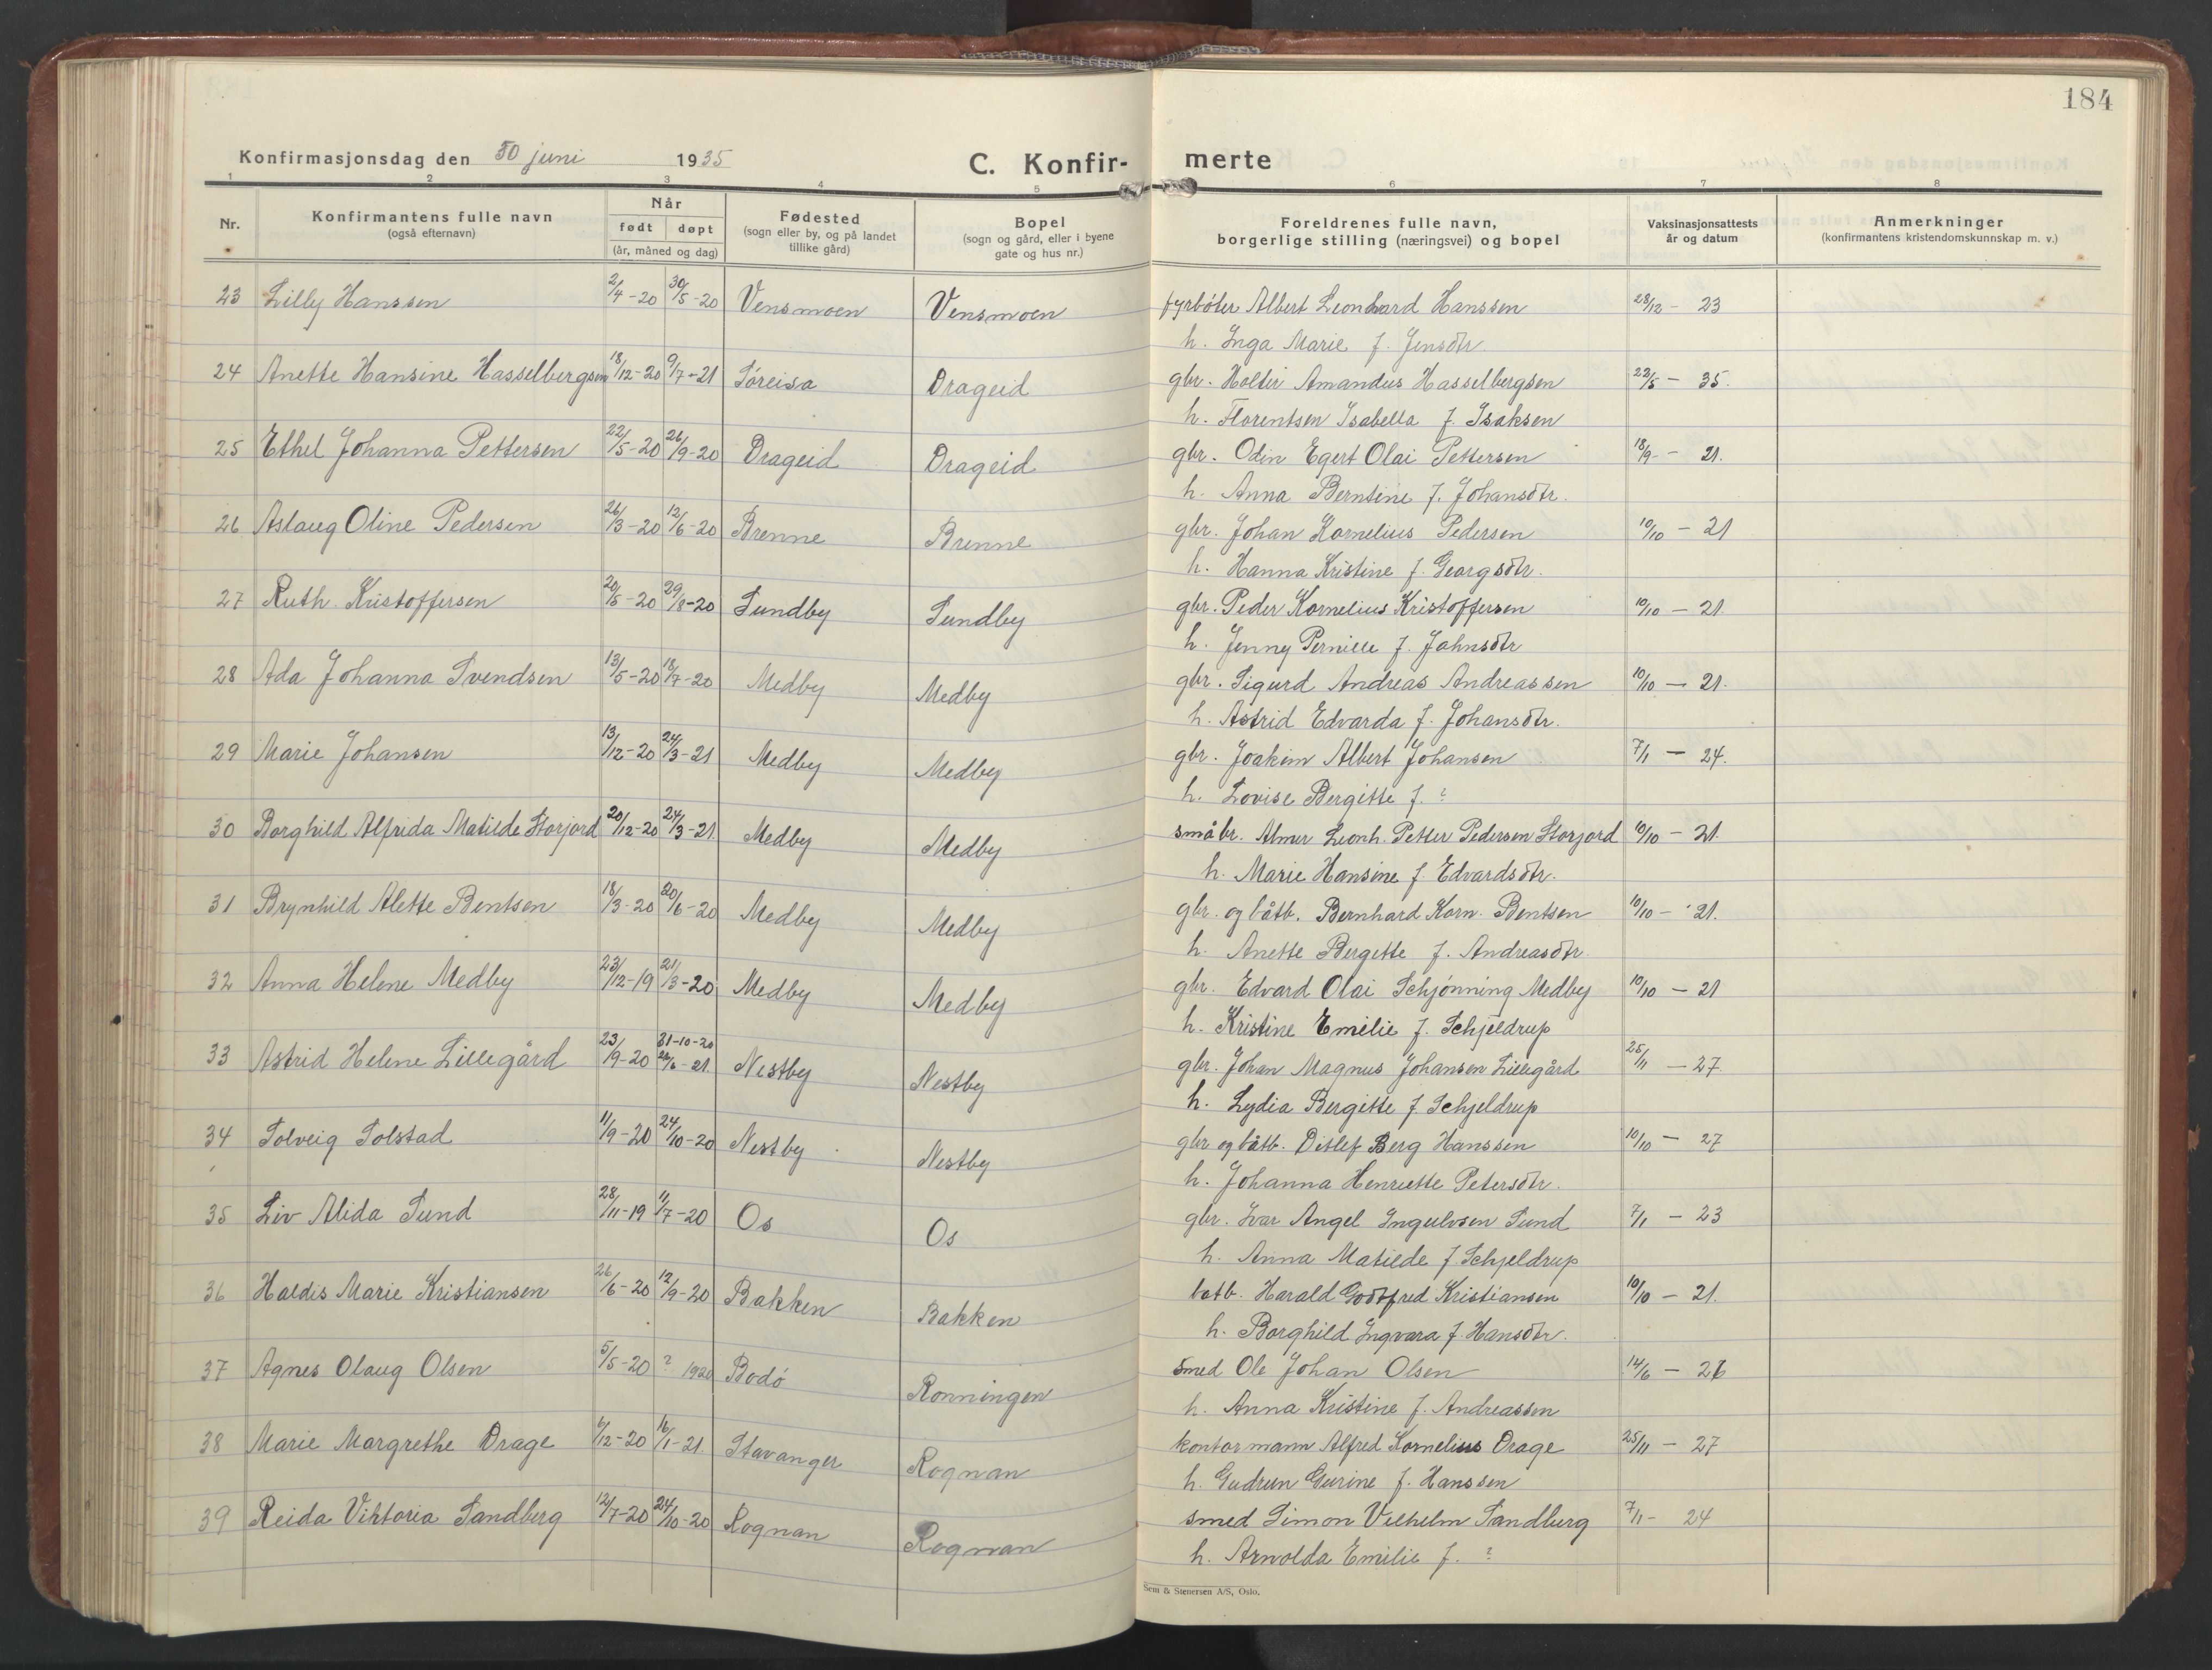 184
Konfirmasjonsdag den 30 juni 1935
C. Konfir- merte
1 2 3 4 5 6 7 8
Nr. Konfirmantens fulle navn (også efternavn) Når født døpt (år, måned og dag) Fødested (sogn eller by, og på landet tillike gård) Bopel (sogn og gård, eller i byene gate og hus nr.) Foreldrenes fulle navn, borgerlige stilling (næringsvei) og bopel Vaksinasjonsattests år og datum Anmerkninger (konfirmantens kristendomskunnskap m. v.)
23 Lilly Hanssen 2/4-20 30/5-20 Vensmoen Vensmoen fyrbøter Albert Leonhard Hanssen 28/12 - 23
h. Inga Marie f. Jensdtr
24 Anette Hansine Hasselbergsen 18/12-20 9/7-21 Søreisa Drageid gbr. Holter Amandus Hasselbergsen 22/5 - 35.
h. Florentsen Isabella f. Isaksen
25 Ethel Johanna Pettersen 22/5-20 26/9-20 Drageid Drageid gbr. Odin Egert Olai Pettersen 18/9 - 21.
h. Anna Berntine f. Johansdtr.
26 Aslaug Oline Pedersen 26/3-20 12/6-20 Brenne Brenne gbr. Johan Kornelius Pedersen 10/10 - 21
h. Hanna Kristine f. Georgsdtr.
27 Ruth Kristoffersen 20/5-20 29/8-20 Sundby Sundby gbr. Peder Kornelius Kristoffersen 10/10 - 21.
h. Jenny Pernille f. Johnsdtr
28 Ada Johanna Svendsen 13/5-20 18/7-20 Medby Medby gbr. Sigurd Andreas Andreassen 10/10 - 21.
h. Astrid Edvarda f. Johansdtr.
29 Marie Johansen 13/12-20 24/3-21 Medby Medby gbr. Joakim Albert Johansen 7/1 - 24.
h. Lovise Bergitte f. ?
30 Borghild Alfrida Matilde Storjord 20/12-20 24/3-21 Medby Medby småbr. Almer Leonh. Petter Pedersen Storjord 10/10 - 21.
h. Marie Hansine f. Edvardsdtr.
31 Brynhild Alette Bentsen 18/3-20 20/6-20 Medby Medby gbr. og båtb. Bernhard Korn. Bentsen 10/10 - 21.
h. Anette Bergette f. Andreasdtr.
32 Anna Helene Medby 23/12-19 21/3-20 Medby Medby gbr. Edvard Olai Schjønning Medby 10/10 - 21
h. Kristine Emilie f. Schjeldrup
33 Astrid Helene Lillegård 23/9-20 31-10-20 Nestby Nestby gbr. Johan Magnus Johansen Lillegård 25/11 - 27.
h. Lydia Bergitte f Schjeldrup
34 Solveig Solstad 11/9-20 24/10-20 Nestby Nestby gbr og båtb. Ditlef Berg Hanssen 10/10 - 27
h. Johanna Henriette Petersdtr.
35 Liv Alida Sund 28/11-19 11/7-20 Os Os gbr. Ivar Angel Ingulvsen Sund 7/1 - 23
h. Anna Matilde f Schjeldrup
36 Haldis Marie Kristiansen 26/6-20 12/9-20 Bakken Bakken batb. Harald Godtfred Kristiansen 10/10 - 21.
h. Borghild Ingvara f. Hansdtr.
37 Agnes Olaug Olsen 5/5-20 ? 1920 Bodø Ronningen smed Ole Johan Olsen 14/6 - 26
h. Anna Kristine f. Andreassen
38 Marie Margrethe Drage 6/12-20 16/1-21. Stavanger Rognan kontormann Alfred Kornelius Drage 25/11 - 27
h. Gudrun Gurine f. Hanssen
39 Reida Viktoria Sandberg 12/7-20 24/10-20 Rognan Rognan smed Simon Vilhelm Sandberg 7/1 - 24
h. Arnolda Emilie f. ?
Sem & Stenersen A/S, Oslo.